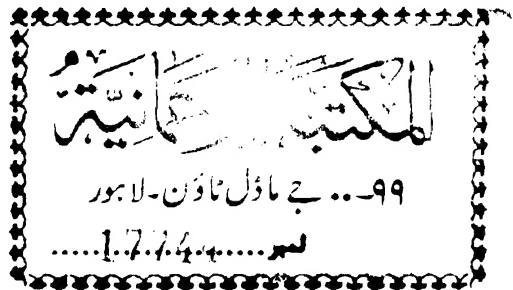 المكتبة ...مانية
۹۹-.. جے ماڈل ٹاؤن - لاہور
نمبر.....17744.....